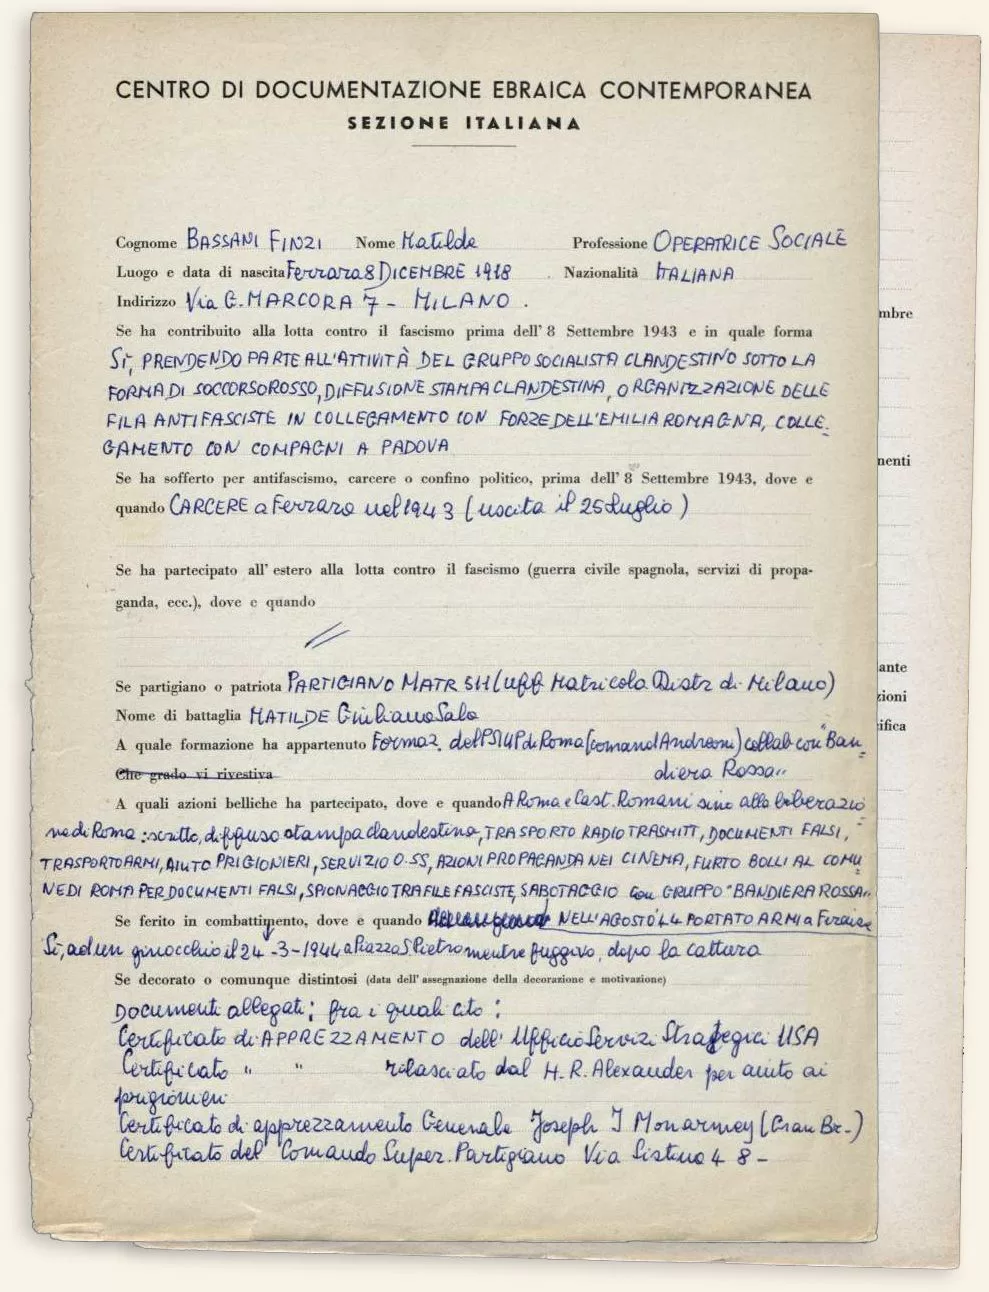 CENTRO DI DOCUMENTAZIONE EBRAICA CONTEMPORANEA
SEZIONE ITALIANA
Cognome BASSANI FINZI Nome Matilde Professione OPERATRICE SOCIALE
Luogo e data di nascita Ferrara 8 DICEMBRE 1918 Nazionalità ITALIANA
Indirizzo Via G. MARCORA 7 - MILANO .
Se ha contribuito alla lotta contro il fascismo prima dell' 8 Settembre 1943 e in quale forma
SI, PRENDENDO PARTE ALL'ATTIVITÀ DEL GRUPPO SOCIALISTA CLANDESTINO SOTTO LA
FORMA DI SOCCORSO ROSSO, DIFFUSIONE STAMPA CLANDESTINA, ORGANIZZAZIONE DELLE
FILA ANTIFASCISTE IN COLLEGAMENTO CON FORZE DELL'EMILIA ROMAGNA, COLLE-
GAMENTO CON COMPAGNI A PADOVA
Se ha sofferto per antifascismo, carcere o confino politico, prima dell' 8 Settembre 1943, dove e
quando CARCERE a Ferrara nel 1943 (uscita il 25 Luglio)
Se ha partecipato all' estero alla lotta contro il fascismo (guerra civile spagnola, servizi di propa-
ganda, ecc.), dove e quando
//
Se partigiano o patriota PARTIGIANO MATR (Uff Matricola Distr di Milano)
Nome di battaglia MATILDE Giuliano Sala
A quale formazione ha appartenuto Formaz. del PSIUP di Roma (comand Andreoni) collab con "Ban-
Che grado vi rivestiva diera Rossa"
A quali azioni belliche ha partecipato, dove e quando A Roma e Cast. Romani sino alla liberazio
ne di Roma: scritto, diffuso stampa clandestina, TRASPORTO RADIO TRASMITT, DOCUMENTI FALSI,
TRASPORTO ARMI, AIUTO PRIGIONIERI, SERVIZIO O.SS, AZIONI PROPAGANDA NEI CINEMA, FURTO BOLLI AL COMU
NE DI ROMA PER DOCUMENTI FALSI, SPIONAGGIO TRA FILE FASCISTE, SABOTAGGIO con GRUPPO "BANDIERA ROSSA"
Se ferito in combattimento, dove e quando NELL'AGOSTO '44 PORTATO ARMI a Ferrara
Si, ad un ginocchio il 24-3-1944 a Piazza S. Pietro mentre fuggivo, dopo la cattura
Se decorato o comunque distintosi (data dell' assegnazione della decorazione e motivazione)
Documenti allegati; fra i quali cito :
Certificato di APPREZZAMENTO dell' Ufficio Servizi Strategici USA
Certificato " " rilasciato dal H. R. Alexander per aiuto ai
prigionieri
Certificato di apprezzamento Generale Joseph (Gran Br-)
Certificato del Comando Super. Partigiano Via Sistina 48 -
mbre
nenti
ante
zioni
ifica